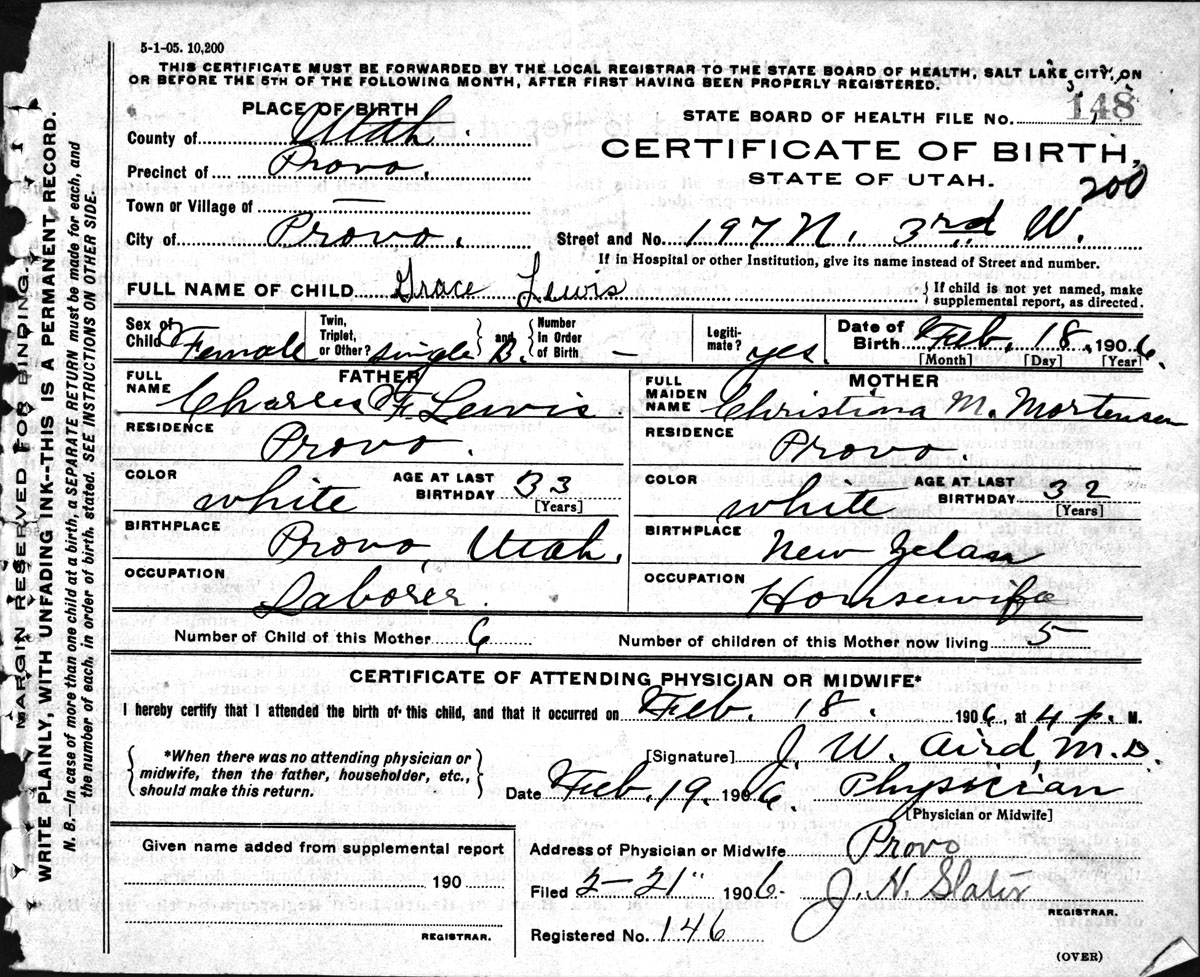 5-1-05. 10,200
THIS CERTIFICATE MUST BE FORWARDED BY THE LOCAL REGISTRAR TO THE STATE BOARD OF HEALTH, SALT LAKE CITY, ON
OR BEFORE THE 5TH OF THE FOLLOWING MONTH, AFTER FIRST HAVING BEEN PROPERLY REGISTERED.
PLACE OF BIRTH
County of Utah.
Precinct of Provo.
Town or Village of —
City of Provo.
STATE BOARD OF HEALTH FILE No. 148
CERTIFICATE OF BIRTH,
STATE OF UTAH.
200
Street and No. 197 N. 3rd W.
If in Hospital or other Institution, give its name instead of Street and number.
FULL NAME OF CHILD Grace Lewis { If child is not yet named, make supplemental report, as directed.
Sex of Child Female
Twin, Triplet, or Other? single } and { Number In Order of Birth –
Legitimate? yes.
Date of Birth Feb. 18, 1906.
[Month] [Day] [Year]
FATHER
FULL NAME Charles F. Lewis
RESIDENCE Provo.
COLOR white AGE AT LAST BIRTHDAY 33
[Years]
BIRTHPLACE Provo, Utah.
OCCUPATION Laborer.
MOTHER
FULL MAIDEN NAME Christina M. Mortensen
RESIDENCE Provo.
COLOR white AGE AT LAST BIRTHDAY 32
[Years]
BIRTHPLACE New Zelan
OCCUPATION Housewife
Number of Child of this Mother 6 Number of children of this Mother now living 5
CERTIFICATE OF ATTENDING PHYSICIAN OR MIDWIFE*
I hereby certify that I attended the birth of this child, and that it occurred on Feb. 18. 1906, at 4 p. M.
{ *When there was no attending physician or
midwife, then the father, householder, etc.,
should make this return. }
[Signature] J. W. Aird, M.D.
Date Feb. 19. 1906. Physician
[Physician or Midwife]
Given name added from supplemental report
190
REGISTRAR.
Address of Physician or Midwife Provo
Filed 2-21" 1906. J. H. Slater
REGISTRAR.
Registered No. 146
(OVER)
MARGIN RESERVED FOR BINDING.
WRITE PLAINLY, WITH UNFADING INK--THIS IS A PERMANENT RECORD.
N. B.—In case of more than one child at a birth, a SEPARATE RETURN must be made for each, and
the number of each, in order of birth, stated. SEE INSTRUCTIONS ON OTHER SIDE.